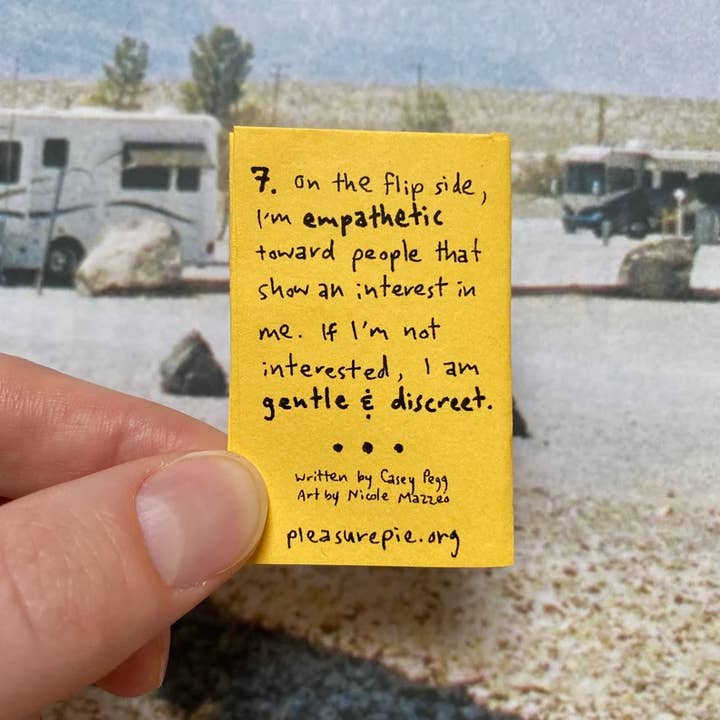 7. on the flip side,
I'm empathetic
toward people that
show an interest in
me. If I'm not
interested, I am
gentle & discreet.
• • •
written by Casey Pegg
Art by Nicole Mazzeo
pleasurepie.org